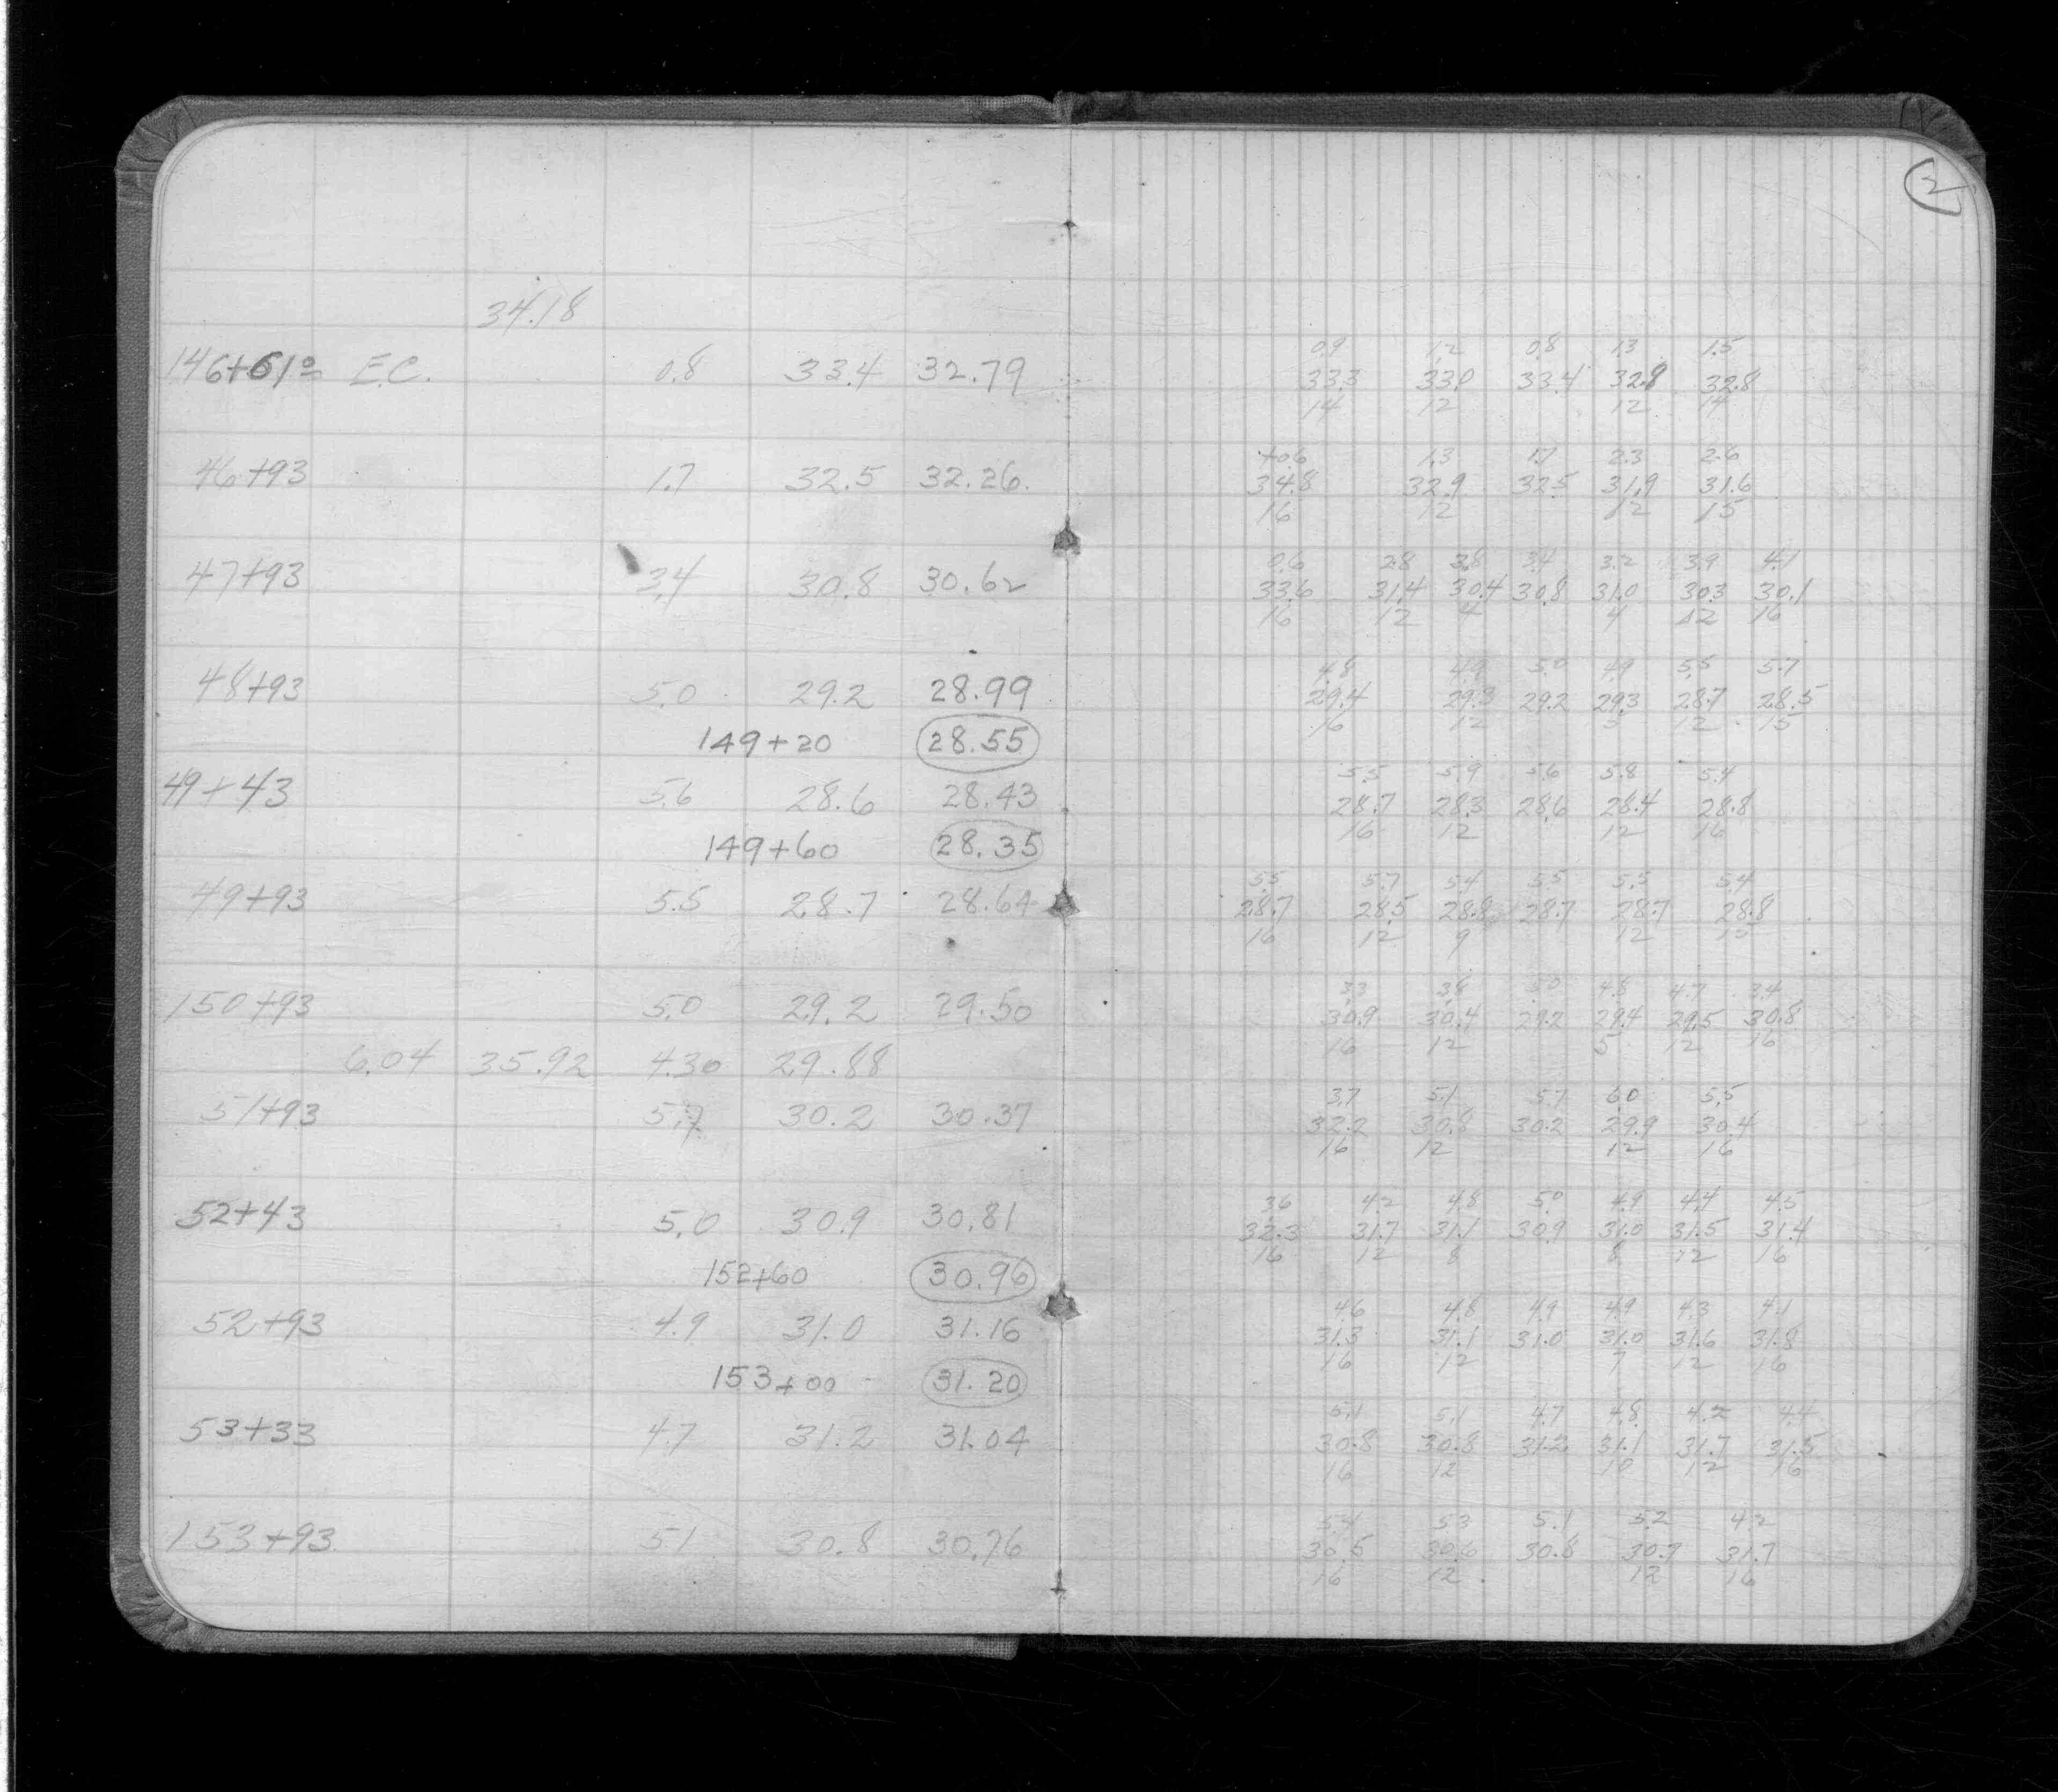 2
34.18
146+61º E.C. 0.8 33.4 32.79
0.9 1.2 0.8 1.3 1.5
33.3 33.0 33.4 32.8 32.8
14 12 12 14
46+93 1.7 32.5 32.26
+0.6 1.3 1.7 2.3 2.6
34.8 32.9 32.5 31.9 31.6
16 12 12 15
47+93 3.4 30.8 30.62
0.6 2.8 3.8 3.4 3.2 3.9 4.1
33.6 31.4 30.4 30.8 31.0 30.3 30.1
16 12 4 4 12 16
48+93 5.0 29.2 28.99
4.8 4.9 5.0 4.9 5.5 5.7
29.4 29.3 29.2 29.3 28.7 28.5
16 12 5 12 15
149+20 28.55
49+43 5.6 28.6 28.43
5.5 5.9 5.6 5.8 5.4
28.7 28.3 28.6 28.4 28.8
16 12 12 16
149+60 28.35
49+93 5.5 28.7 28.64
5.5 5.7 5.4 5.5 5.5 5.4
28.7 28.5 28.8 28.7 28.7 28.8
16 12 9 12 15
150+93 5.0 29.2 29.50
3.3 3.8 5.0 4.8 4.7 3.4
30.9 30.4 29.2 29.4 29.5 30.8
16 12 5 12 16
6.04 35.92 4.30 29.88
51+93 5.7 30.2 30.37
3.7 5.1 5.7 6.0 5.5
32.2 30.8 30.2 29.9 30.4
16 12 12 16
52+43 5.0 30.9 30.81
3.6 4.2 4.8 5.0 4.9 4.4 4.5
32.3 31.7 31.1 30.9 31.0 31.5 31.4
16 12 8 8 12 16
152+60 30.96
52+93 4.9 31.0 31.16
4.6 4.8 4.9 4.9 4.3 4.1
31.3 31.1 31.0 31.0 31.6 31.8
16 12 7 12 16
153+00 31.20
53+33 4.7 31.2 31.04
5.1 5.1 4.7 4.8 4.2 4.4
30.8 30.8 31.2 31.1 31.7 31.5
16 12 10 12 16
153+93 5.1 30.8 30.76
5.4 5.3 5.1 5.2 4.2
30.5 30.6 30.8 30.7 31.7
16 12 12 16